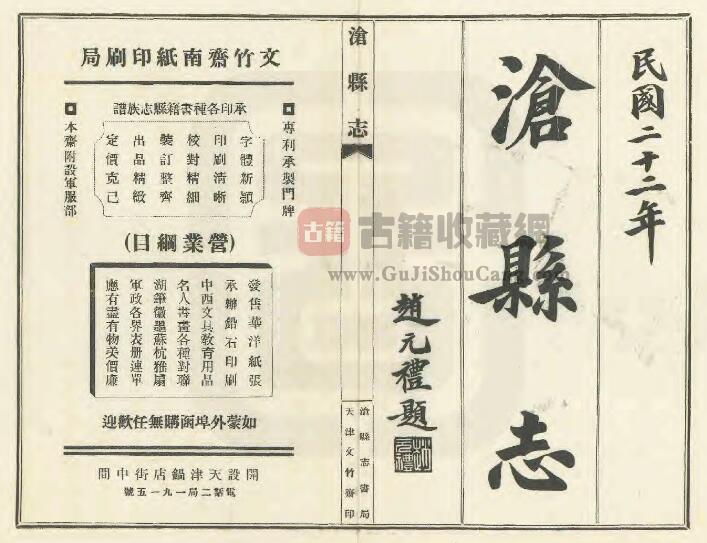 民國二十二年
滄縣志
趙元禮題
滄縣志
滄縣志書局
天津文竹齋印
文竹齋南紙印刷局
承印各種書籍縣志族譜
專利承製門牌
字體新穎
印刷清晰
校對精細
裝訂整齊
出品精緻
定價克己
本齋附設軍服部
(營業綱目)
發售華洋紙張
承辦鉛石印刷
中西文具教育用品
名人書畫各種對聯
湖筆徽墨蘇杭雅扇
軍政各界表册連單
應有盡有物美價廉
如蒙外埠函購無任歡迎
開設天津鍋店街中間
電話二局一九一五號
古籍
古籍收藏網
www.GuJiShouCang.com